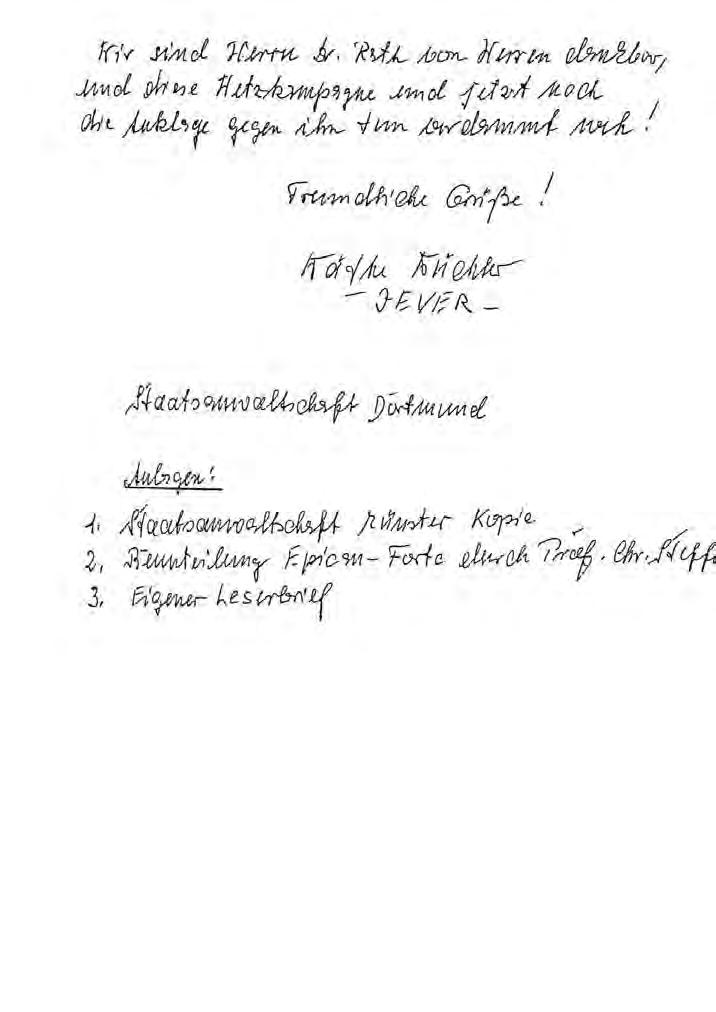 Wir sind Herrn Dr. Roth von Herzen dankbar,
und diese Hetzkampagne und jetzt noch
die Anklage gegen ihn tun verdammt weh!
Freundliche Grüße!
Käthe
– JEVER –
Staatsanwaltschaft Dortmund
Anlagen:
1. Staatsanwaltschaft Münster Kopie
2. Beurteilung Epican-Forte durch Prof. Chr. Steff
3. Eigener Leserbrief